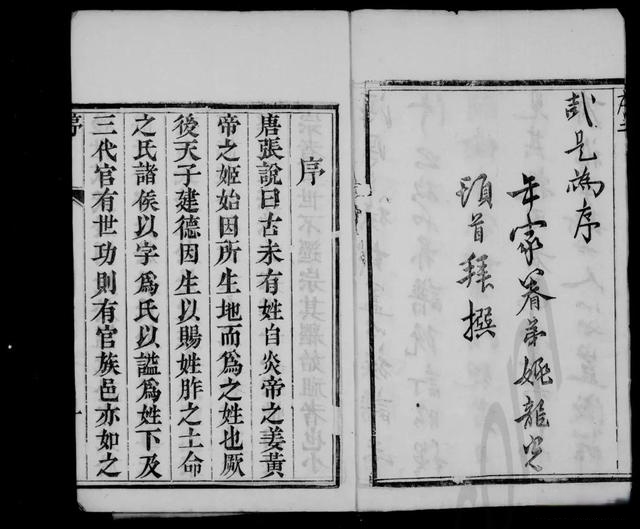 序二
哉是為序
年家眷弟姚龍光
頓首拜撰
序
唐張說曰古未有姓自炎帝之姜黃
帝之姬始因所生地而為之姓也厥
後天子建德因生以賜姓胙之土命
之氏諸侯以字為氏以謚為姓下及
三代官有世功則有官族邑亦如之
序
一